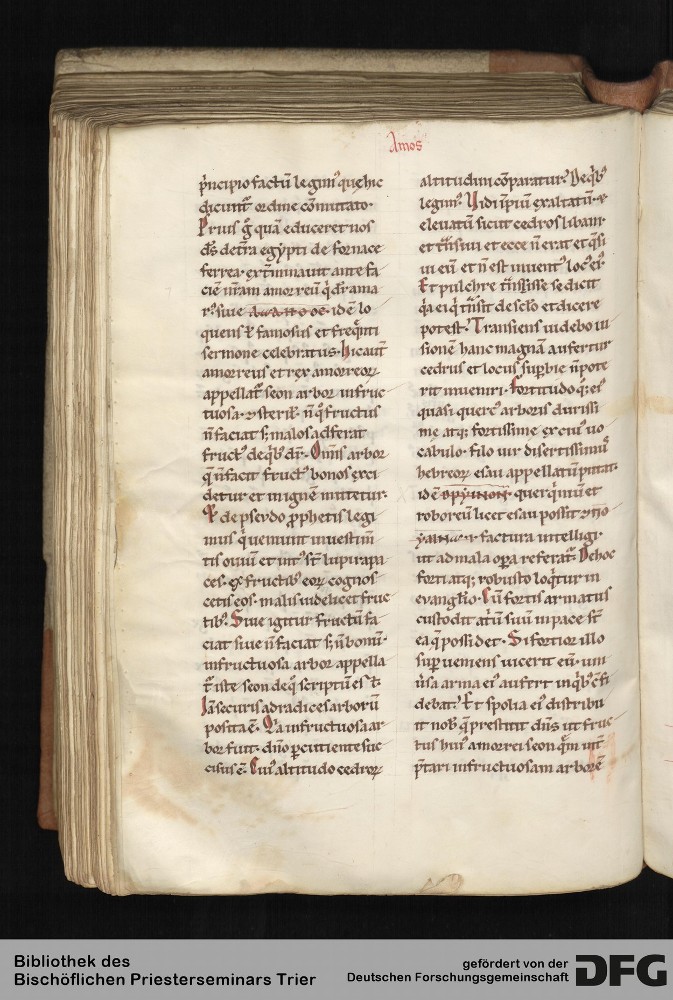 Amos
p̄ncipio factū legim᷒ que hic
dicunt᷒ ordine cōmutato·
Prius g̊ quā educeret nos
d̄s de t̄ra egypti de fornace
ferrea· ext̄minauit ante fa
ciē n̄ram amorreū
idē lo
quens ł famosus et
sermone celebratus· hic aut̄
amorreus et rex amorreoꝝ
appellat᷒ seon arbor infruc
tuosa· ⁊ steril᷒· n̄ q̊ fructus
n̄ faciat s; malos adferat
fruct᷒ de q̇b᷒ dr̄· Om̄is arbor
q̄ n̄ facit fruct᷒ bonos exci
detur et in ignē mittetur·
de pseudo ꝓphetis legi
mus q̇ ueniunt in uestim̄
tis ouiū et int᷒ st̄ lupi rapa
ces· ex fructib᷒ eoꝝ cognos
cetis eos· malis uidelicet fruc
tib᷒· Siue igitur fructū fa
ciat siue n̄ faciat s; n̄ bonū·
infructuosa arbor appella
t᷒ iste seon de q̊ scriptū est·
Iā securis ad radices arborū
posita ē· Q̇a infructuosa ar
bor fuit· dn̄o ꝑcutiente suc
cisus ē· Cui᷒ altitudo cedroꝝ
altitudini cōparatur· De q̇b᷒
legim᷒· Uidi īpiū exaltatū· ⁊
eleuatū sicut cedros libani·
et t̄nsiui et ecce n̄ erat et q̄si
ui eū et n̄ est inuent᷒ loc᷒ ei᷒·
Et pulchre t̄nsisse se dicit
q̇a eiq̄ t̄nsit de sclo et dicere
potest· Transiens uidebo ui
sionē hanc magnā aufertur
cedrus et locus suꝑbie n̄ pote
rit inueniri· Fortitudo q; ei᷒
quasi querc᷒ arboris durissi
me atq; fortissime ex cui᷒ uo
cabulo· filo uir disertissim᷒
hebreoꝝ esau appellatū putat·
idē querq̇nū et
roboreū licet esau possit
factura intelligi·
ut ad mala oꝑa referat᷒· De hoc
forti atq; robusto loq̇tur in
euanglio· Cū fortis armatus
custodit atriū suū in pace st̄
ea q̄ possidet· Si fortior illo
suꝑueniens uicerit eū· uni
ūsa arma ei᷒ aufert in q̇b᷒ cfi
debat· Et spolia ei᷒ distribu
it nob̄ q̄ prestitit dn̄s ut fruc
tus hui᷒ amorrei seon int᷒
p̄tari infructuosam arborē
Bibliothek des
Bischöflichen Priesterseminars Trier
gefördert von der
Deutschen Forschungsgemeinschaft
DFG